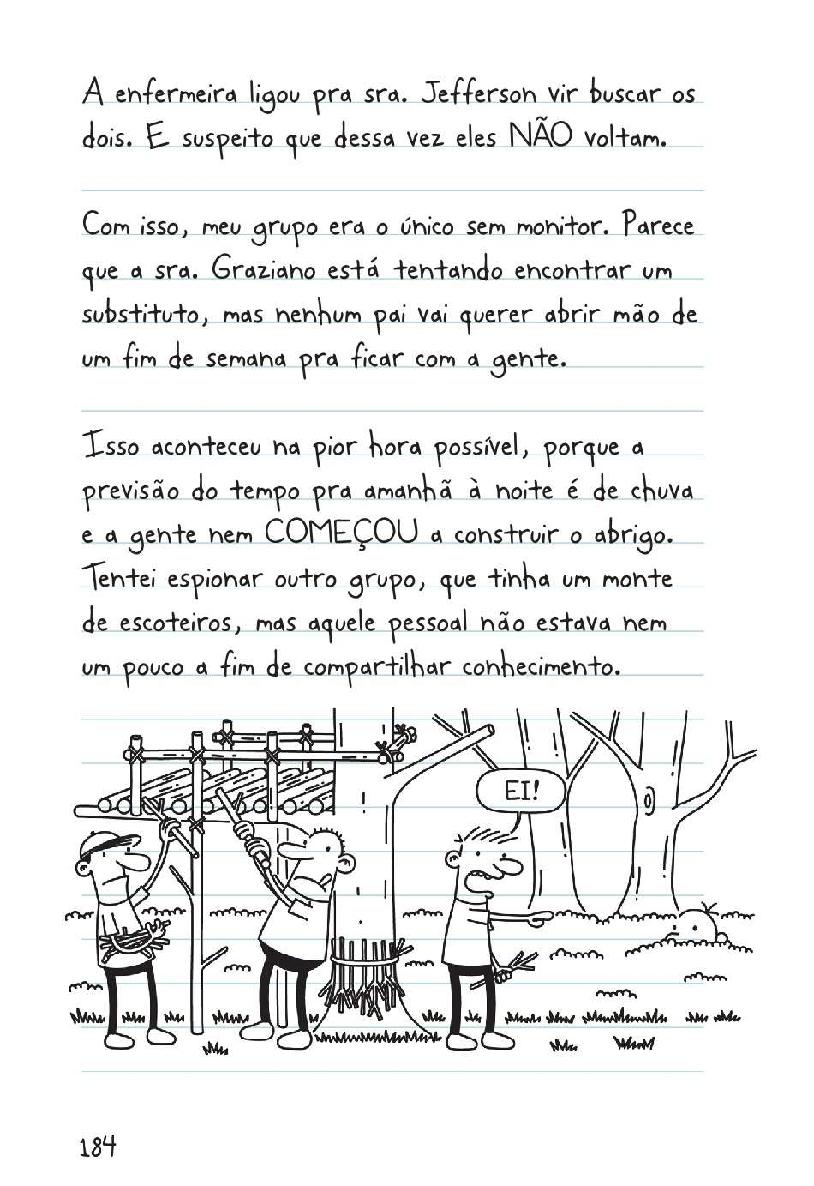 A enfermeira ligou pra sra. Jefferson vir buscar os
dois. E suspeito que dessa vez eles NÃO voltam.
Com isso, meu grupo era o único sem monitor. Parece
que a sra. Graziano está tentando encontrar um
substituto, mas nenhum pai vai querer abrir mão de
um fim de semana pra ficar com a gente.
Isso aconteceu na pior hora possível, porque a
previsão do tempo pra amanhã à noite é de chuva
e a gente nem COMEÇOU a construir o abrigo.
Tentei espionar outro grupo, que tinha um monte
de escoteiros, mas aquele pessoal não estava nem
um pouco a fim de compartilhar conhecimento.
EI!
184